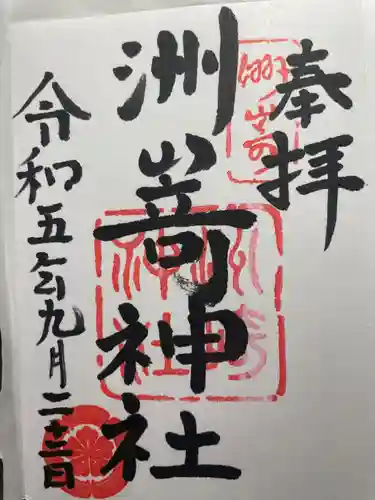 奉拝
洲嵜神社
令和五年九月二十三日